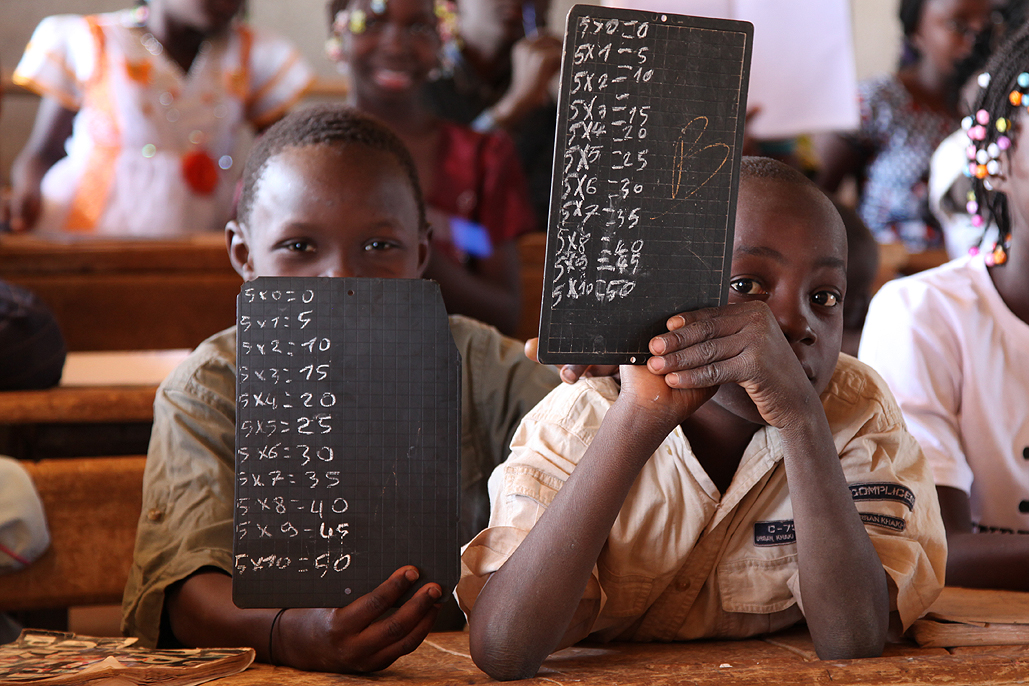 5x0=0
5x1=5
5x2=10
5x3=15
5x4=20
5x5=25
5x6=30
5x7=35
5x8=40
5x9=45
5x10=50
5x0=0
5x1=5
5x2=10
5x3=15
5x4=20
5x5=25
5x6=30
5x7=35
5x8=40
5x9=45
5x10=50
B
COMPLICE
URBAN KHAKI
C-75
URBAN KHAKI